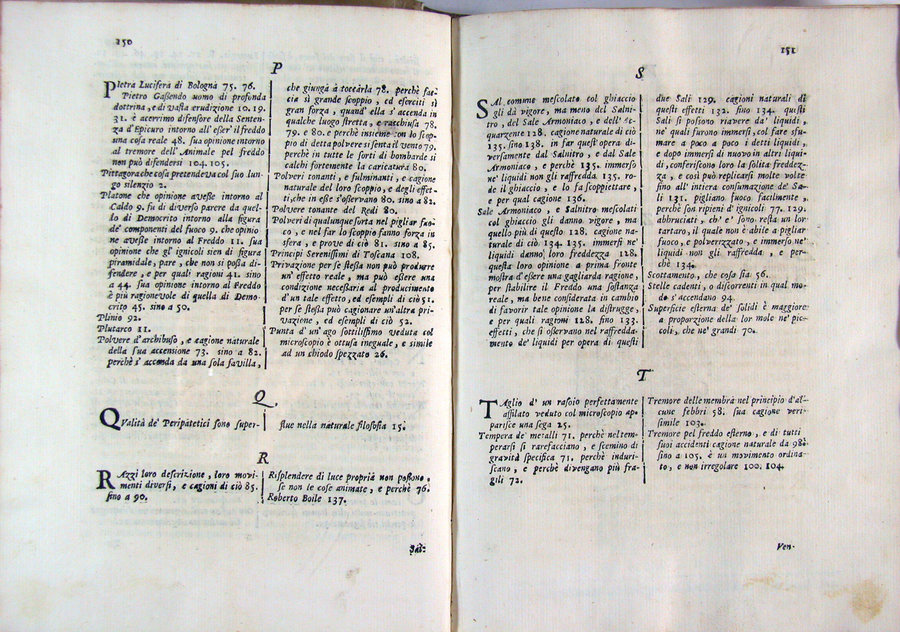 150
P
PIetra Lucifera di Bologna 75. 76.
Pietro Gassendo uomo di profonda
dottrina, e di vasta erudizione 10. 19.
31. è acerrimo difensore della Senten-
za d'Epicuro intorno all'esser il freddo
una cosa reale 48. sua opinione intorno
al tremore dell'Animale pel freddo
non può difendersi 104. 105.
Pittagora che cosa pretendeva col suo lun-
go silenzio 2.
Platone che opinione avesse intorno al
Caldo 9. fu di diverso parere da quel-
lo di Democrito intorno alla figura
de' componenti del fuoco 9. che opinio
ne avesse intorno al Freddo 11. sua
opinione che gl'ignicoli sien di figura
piramidale, pare, che non si possa di-
fendere, e per quali ragioni 41. sino
a 44. sua opinione intorno al Freddo
è più ragionevole di quella di Demo-
crito 45. sino a 50.
Plinio 92.
Plutarco 11.
Polvere d'archibuso, e cagione naturale
della sua accensione 73. sino a 82.
perchè s'accenda da una sola favilla,
che giunga à toccarla 78. perchè fac-
cia sì grande scoppio, ed eserciti sì
gran forza, quand' ella s'accenda in
qualche luogo stretta, e racchiusa 78.
79. e 80. e perchè insieme con lo scop-
pio di detta polvere si senta il vento 79.
perchè in tutte le sorti di bombarde si
calchi fortemente la caricatura 80.
Polveri tonanti, e fulminanti, e cagione
naturale del loro scoppio, e degli effet-
ti, che in esse s'osservano 80. sino a 82.
Polvere tonante del Redi 80.
Polveri di qualunque sorta nel pigliar fuo-
co, e nel far lo scoppio fanno forza in
sfera, e prove di ciò 81. sino a 85.
Principi Serenissimi di Toscana 108.
Privazione per se stessa non può produrre
un'effetto reale, ma può essere una
condizione necessaria al producimento
d'un tale effetto, ed esempli di ciò 51.
per se stessa può cagionare un'altra pri-
vazione, ed esempli di ciò 52.
Punta d'un'ago sottilissimo veduta col
microscopio è ottusa ineguale, e simile
ad un chiodo spezzato 26.
Q
QValità de' Peripatetici sono super-
flue nella naturale filosofia 15.
R
RAzzi loro descrizione, loro movi-
menti diversi, e cagioni di ciò 85.
sino a 90.
Risplendere di luce propria non possono,
se non le cose animate, e perchè 76.
Roberto Boile 137.
Sal:
151
S
SAl comune mescolato col ghiaccio
gli dà vigore, ma meno del Salni-
tro, del Sale Armoniaco, e dell'ac-
quarzente 128. cagione naturale di ciò
135. sino 138. in far quest'opera di-
versamente dal Salnitro, e dal Sale
Armoniaco, e perchè 135. immerso
ne' liquidi non gli raffredda. 135. ro-
de il ghiaccio, e lo fa scoppiettare,
e per qual cagione 136.
Sale Armoniaco, e Salnitro mescolati
col ghiaccio gli danno vigore, ma
quello più di questo 128. cagione na-
turale di ciò 134. 135. immersi ne'
liquidi danno loro freddezza 128.
questa loro opinione a prima fronte
mostra d'essere una gagliarda ragione,
per stabilire il Freddo una sostanza
reale, ma bene considerata in cambio
di favorir tale opinione la distrugge,
e per quali ragioni 128. sino 133.
effetti, che si osservano nel raffredda-
mento de' liquidi per opera di questi
due Sali 129. cagioni naturali di
questi effetti 132. sino 134. questi
Sali si possono riavere da' liquidi,
ne' quali furono immersi, col fare sfu-
mare a poco a poco i detti liquidi,
e dopo immersi di nuovo in altri liqui-
di, conferiscono loro la solita freddez-
za, e così può replicarsi molte volte
fino all'intiera consumazione de' Sa-
li 131. pigliano fuoco facilmente,
perchè son ripieni d'ignicoli 77. 129.
abbruciati, ch' e' sono resta un lor
tartaro, il quale non è abile a pigliar
fuoco, e polverizzato, e immerso ne'
liquidi non gli raffredda, e per-
chè 134.
Scottamento, che cosa sia 56.
Stelle cadenti, o discorrenti in qual mo-
do s'accendano 94.
Superficie esterna de' solidi è maggiore
a proporzione della lor mole ne' pic-
coli, che ne' grandi 70.
T
TAglio d' un rasoio perfettamente
affilato veduto col microscopio ap-
parisce una sega 25.
Tempera de' metalli 71. perchè nel tem-
perarsi si rarefacciano, e scemino di
gravità specifica 71. perchè induri-
scano, e perchè divengano più fra-
gili 72.
Tremore delle membra nel principio d'al-
cune febbri 58. sua cagione veri-
simile 103.
Tremore pel freddo esterno, e di tutti
suoi accidenti cagione naturale da 98.
sino a 105. è un movimento ordina-
to, e non irregolare 100. 104.
Ven-